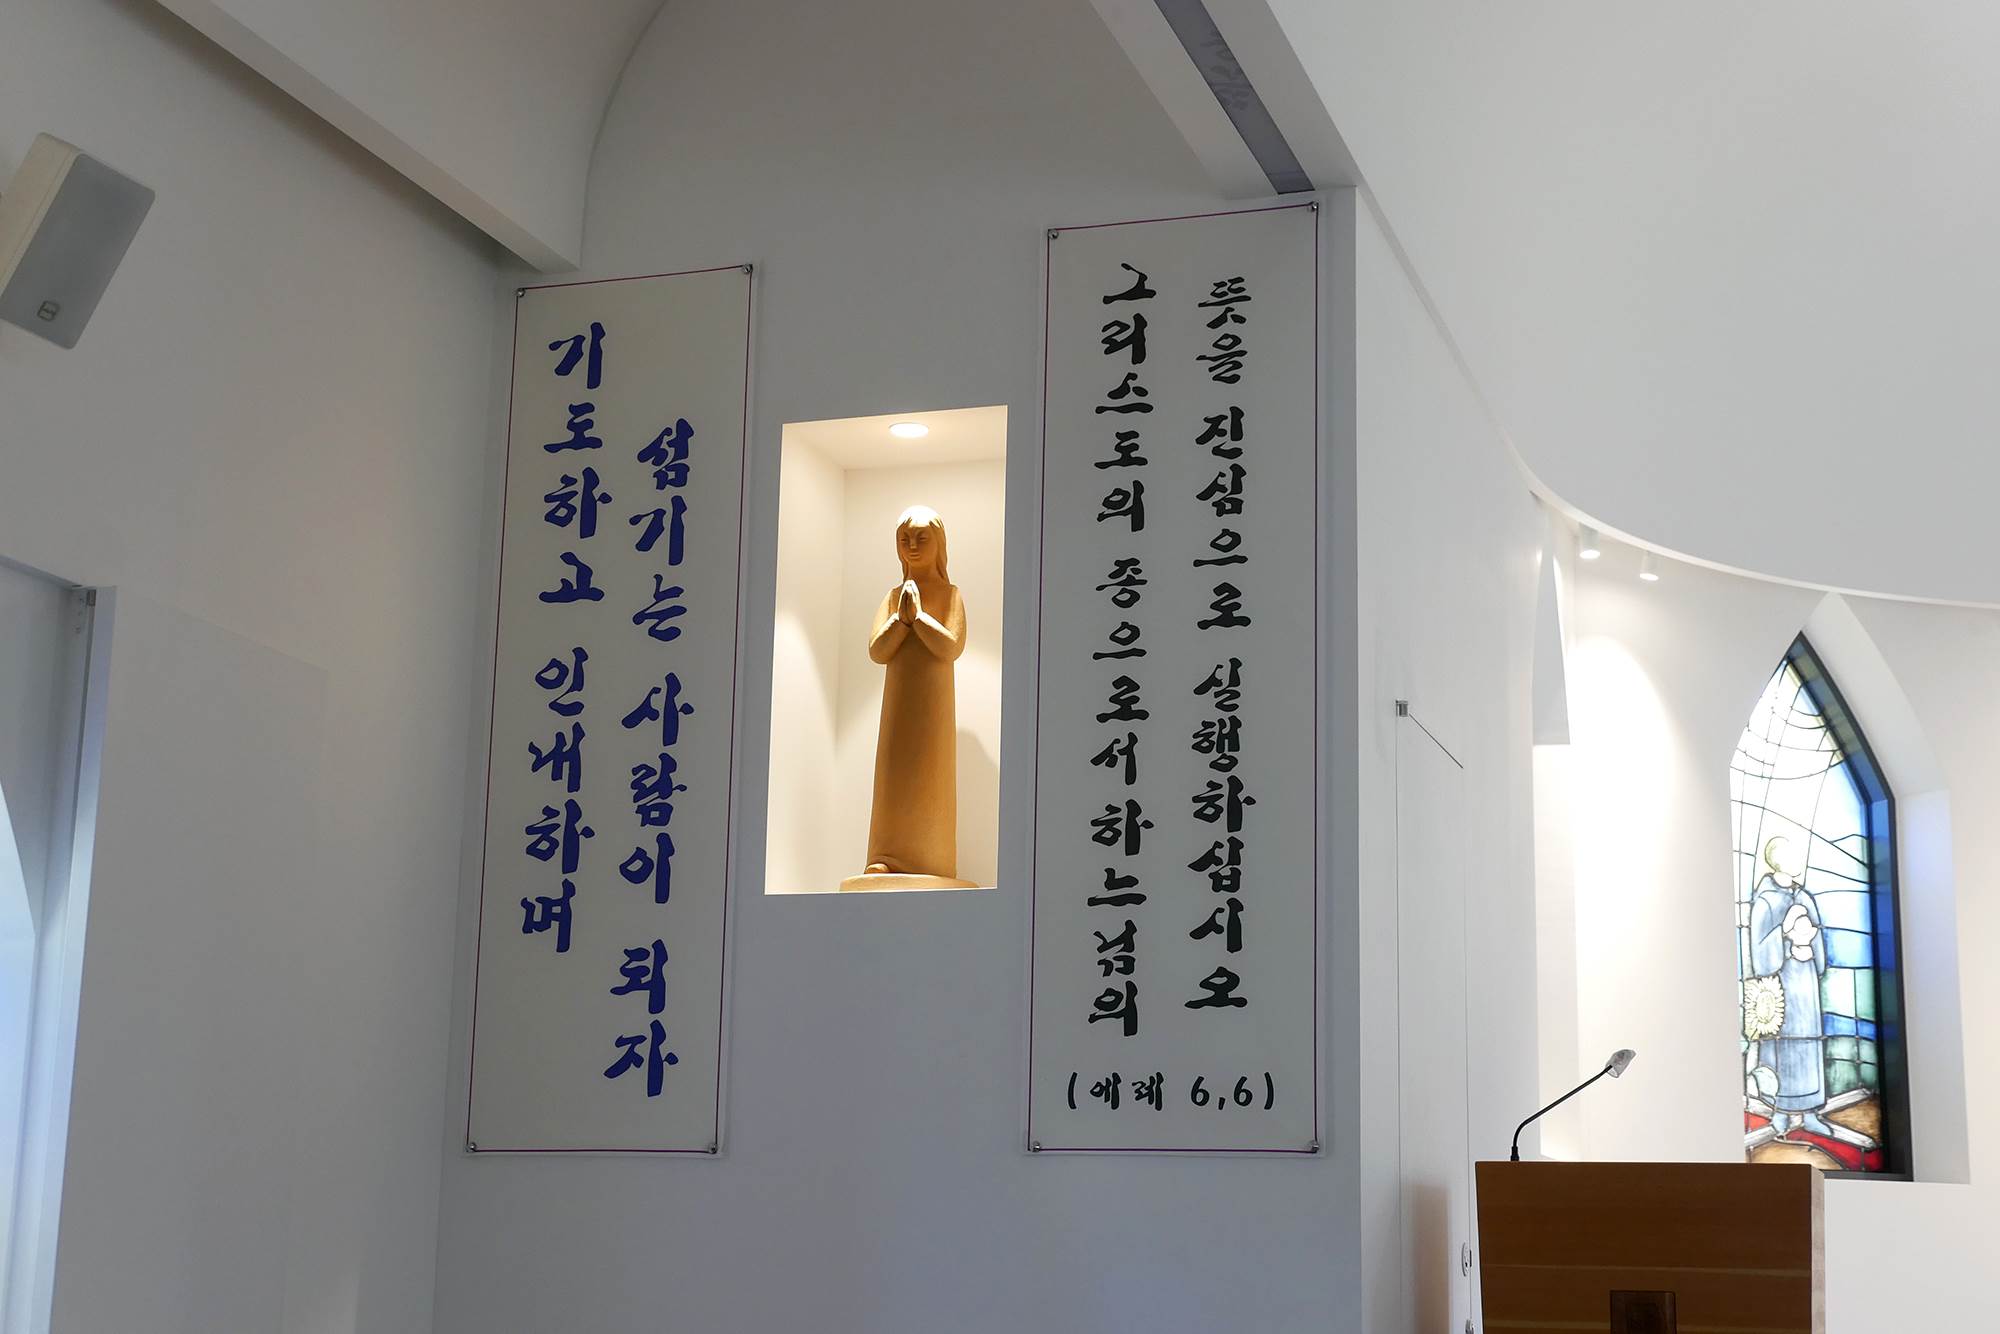 기도하고 인내하며
섬기는 사람이 되자
그리스도의 종으로서 하느님의
뜻을 진심으로 실행하십시오
(에페 6,6)